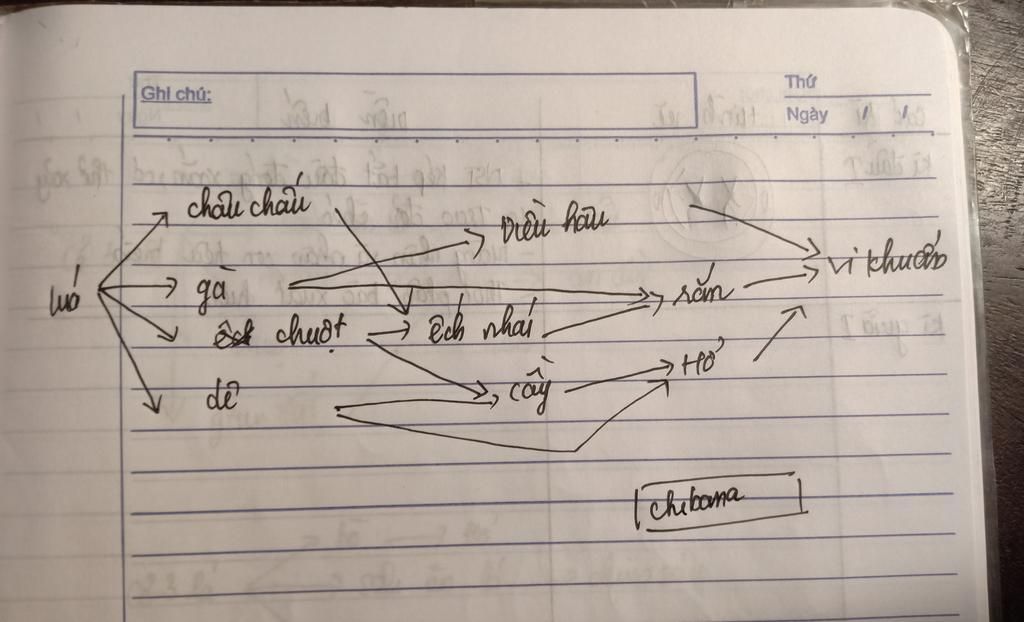 Ghi chú:
Thứ
Ngày / /
châu chấu
diều hâu
vi khuẩn
lúa
gà
rắn
chuột
ếch nhái
Hổ
dê
cầy
chibana